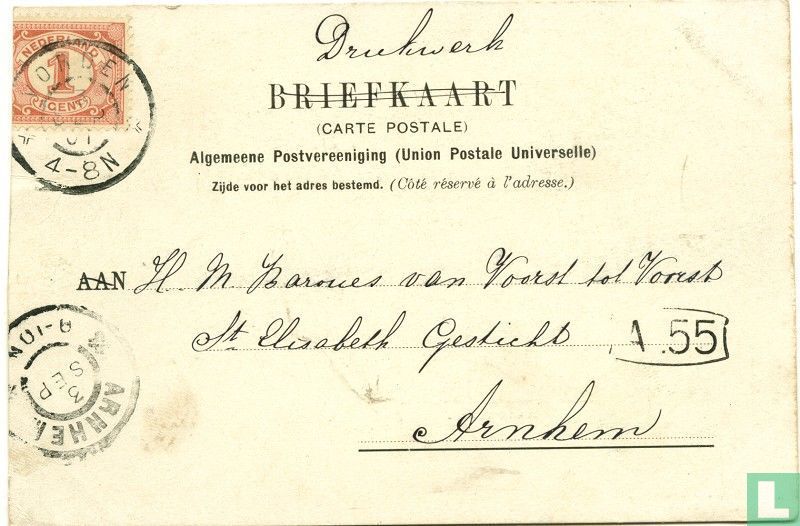 NEDERLAND
1
CENT
4-8N
Drukwerk
BRIEFKAART
(CARTE POSTALE)
Algemeene Postvereeniging (Union Postale Universelle)
Zijde voor het adres bestemd. (Côté réservé à l'adresse.)
AAN H. M. Barones van Voorst tot Voorst
St. Elisabeth Gesticht
A 55
Arnhem
ARNHEM
3 SEP
L